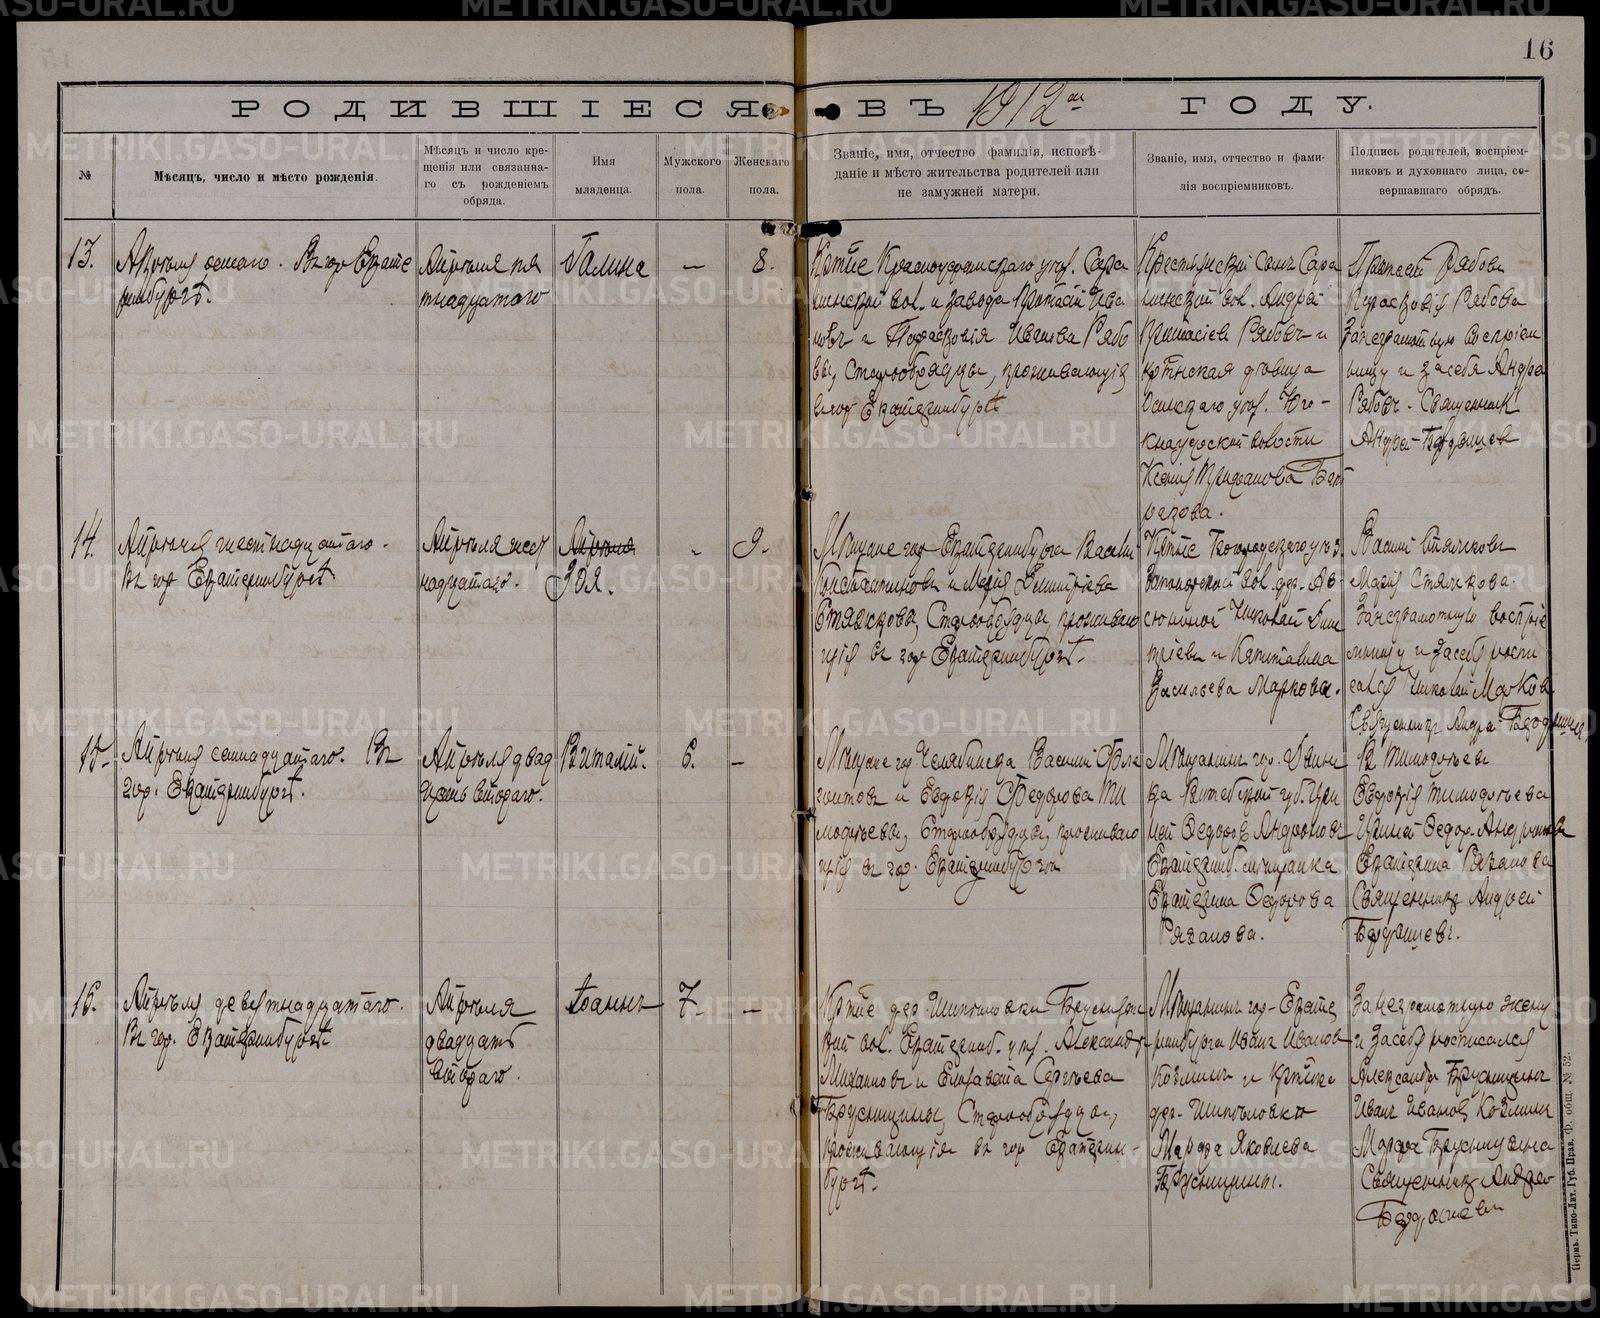 16
РОДИВШІЕСЯ ВЪ 1912 ГОДУ.
№
Мѣсяцъ, число и мѣсто рожденія.
Мѣсяцъ и число кре-
щенія или связанна-
го съ рожденіемъ
обряда.
Имя
младенца.
Мужского
пола.
Женскаго
пола.
Званіе, имя, отчество фамилія, исповѣ-
даніе и мѣсто жительства родителей или
не замужней матери.
Званіе, имя, отчество и фами-
лія воспріемниковъ.
Подпись родителей, воспріем-
никовъ и духовнаго лица, со-
вершавшаго обрядъ.
13.
Апрѣля осьмаго. Въ гор Екате
ринбургѣ.
Апрѣля пя
тнадцатаго
Галина
–
8.
Кртне Красноуфимскаго уѣз. Сара
нинской вол. и завода Протасій Ива
новъ и Парасковія Иванова Рябо
вы, Старообрядцы, проживающія
въ гор Екатеринбургѣ
Крестьянскій Сынъ Сара
нинской вол. Андрей
Протасіев Рябовъ и
кртнская дѣвица
Осинскаго уѣз. Юго-
кнауфской волости
Ксенія
Протасій Рябовъ
Парасковія Рябова
За неграмотную воспріем
ницу и за себя Андре
Рябовъ. Священник
Андрей
14.
Апрѣля шестнадцатаго.
Въ гор Екатеринбургѣ
Апрѣля шест
надцатаго.
Зоя.
-
9.
Мѣщане гор Екатеринбурга Василій
Константиновъ и Марія Димитріева
Стяжкова, Старообрядцы, проживаю
щія въ гор Екатеринбургѣ.
Николай Дим
тріевъ и Капиталина
Васильева Маркова.
Василій Стяжковъ
Марія Стяжкова
За неграмотную воспріе
мницу и за себя роспи
сался Николай Марков
Священникъ Андре
15.
Апрѣля семнадцатаго. Въ
гор. Екатеринбургѣ.
Апрѣля двад
цать втораго.
Виталій.
6.
–
Мѣщане гор Челябинска Василій
и Евдокія Федорова Ти
мофѣевы, Старообрядцы, проживаю
щія въ гор. Екатеринбургѣ
Мѣщанинъ гор. Двин
ска Витебской губ.
Федоров Андроновъ
Екатеринб. мѣщанка
Екатерина Федорова
Рязанова.
В Тимофѣевъ
Евдокія Тимофѣева
Екатерина Рязанова
Священникъ Андрей
16.
Апрѣля девятнадцатаго.
Въ гор. Екатеринбургѣ
Апрѣля
двадцать
втораго.
Іоаннъ
7.
–
Кртне дер. Шиповловки
вол. Екатеринб. уѣз. Александръ
Михаиловъ и Елизавета Сергѣева
Брусницины, Старообрядцы,
проживающія въ гор Екатерин-
бургѣ.
Мѣщанинъ гор. Екате
ринбурга Иванъ Иванов
Козминъ и кртнка
Марфа Яковлева
Брусницина.
За неграмотную жену
и за себя росписался
Александръ Брусницинъ
Иванъ Иванов Козминъ
Марфа Брусницына
Священникъ Андрей
Пермь. Типо-Лит. Губ. Прав. Ф. общ. № 52.
METRIKI.GASO-URAL.RU